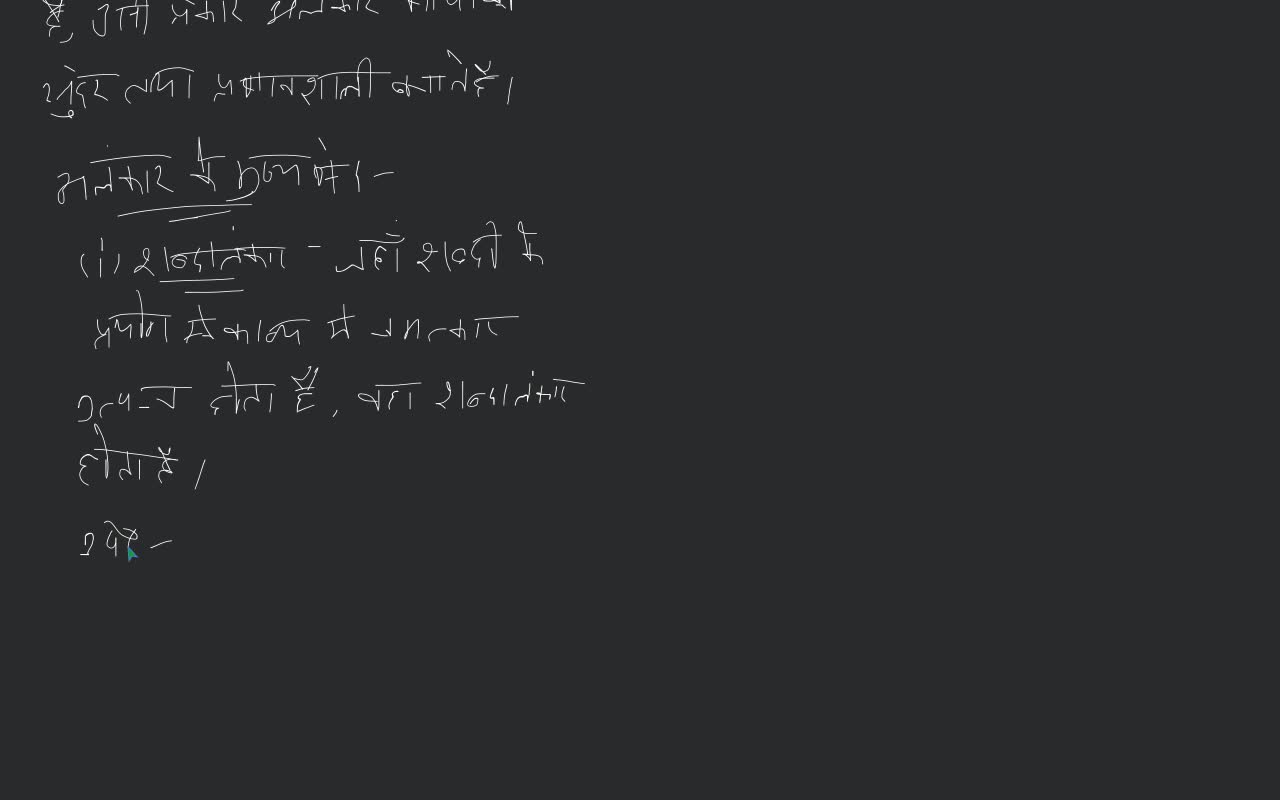 है, उसी प्रकार अलंकार भाषा को
सुंदर तथा प्रभावशाली बनाते हैं।
अलंकार के -
(i) शब्दालंकार - जहाँ शब्दों के
प्रयोग से काव्य में चमत्कार
उत्पन्न होता है, वहा शब्दालंकार
होता है।